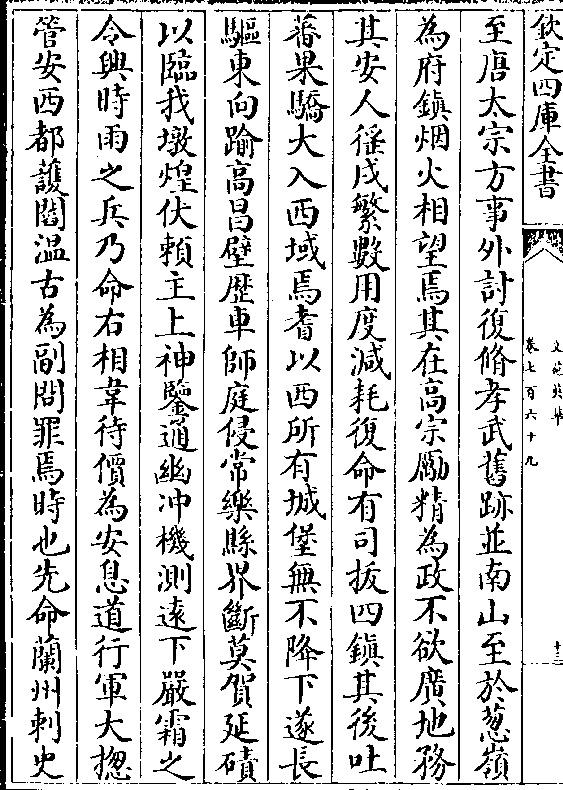 欽定四庫全書
文苑英華
卷七百六十九
十二
至唐太宗方事外討復脩孝武舊跡並南山至於葱嶺
為府鎮烟火相望焉其在高宗勵精為政不欲廣地務
其安人徭戍繁數用度減耗復命有司拔四鎮其後吐
蕃果驕大入西域焉耆以西所有城堡無不降下遂長
驅東向踰高昌壁歴車師庭侵常樂縣界斷莫賀延磧
以臨我墩煌伏賴主上神鑒通幽冲機測遠下嚴霜之
令興時雨之兵乃命右相韋待價為安息道行軍大揔
管安西都護閻温古為副問罪焉時也先命蘭州刺史